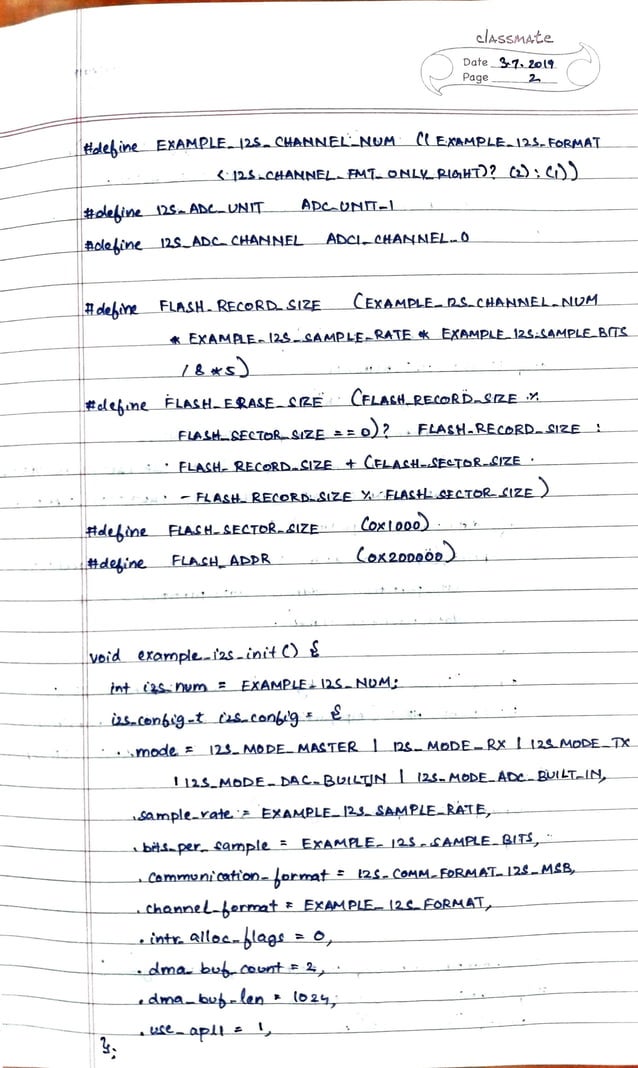 classmate
Date 3.7.2019
Page 2
#define EXAMPLE_I2S_CHANNEL_NUM ((EXAMPLE_I2S_FORMAT
< I2S_CHANNEL_FMT_ONLY_RIGHT)? (2):(1))
#define I2S_ADC_UNIT ADC_UNIT_1
#define I2S_ADC_CHANNEL ADC1_CHANNEL_0
#define FLASH_RECORD_SIZE (EXAMPLE_I2S_CHANNEL_NUM
* EXAMPLE_I2S_SAMPLE_RATE * EXAMPLE_I2S_SAMPLE_BITS
/ 8 * 5)
#define FLASH_ERASE_SIZE (FLASH_RECORD_SIZE %
FLASH_SECTOR_SIZE == 0)? FLASH_RECORD_SIZE :
FLASH_RECORD_SIZE + (FLASH_SECTOR_SIZE
- FLASH_RECORD_SIZE % FLASH_SECTOR_SIZE)
#define FLASH_SECTOR_SIZE (0x1000)
#define FLASH_ADDR (0x200000)
void example_i2s_init() {
int i2s_num = EXAMPLE_I2S_NUM;
i2s_config_t i2s_config = {
.mode = I2S_MODE_MASTER | I2S_MODE_RX | I2S_MODE_TX
| I2S_MODE_DAC_BUILTIN | I2S_MODE_ADC_BUILT_IN,
.sample_rate = EXAMPLE_I2S_SAMPLE_RATE,
.bits_per_sample = EXAMPLE_I2S_SAMPLE_BITS,
.communication_format = I2S_COMM_FORMAT_I2S_MSB,
.channel_format = EXAMPLE_I2S_FORMAT,
.intr_alloc_flags = 0,
.dma_buf_count = 2,
.dma_buf_len = 1024,
.use_apll = 1,
};